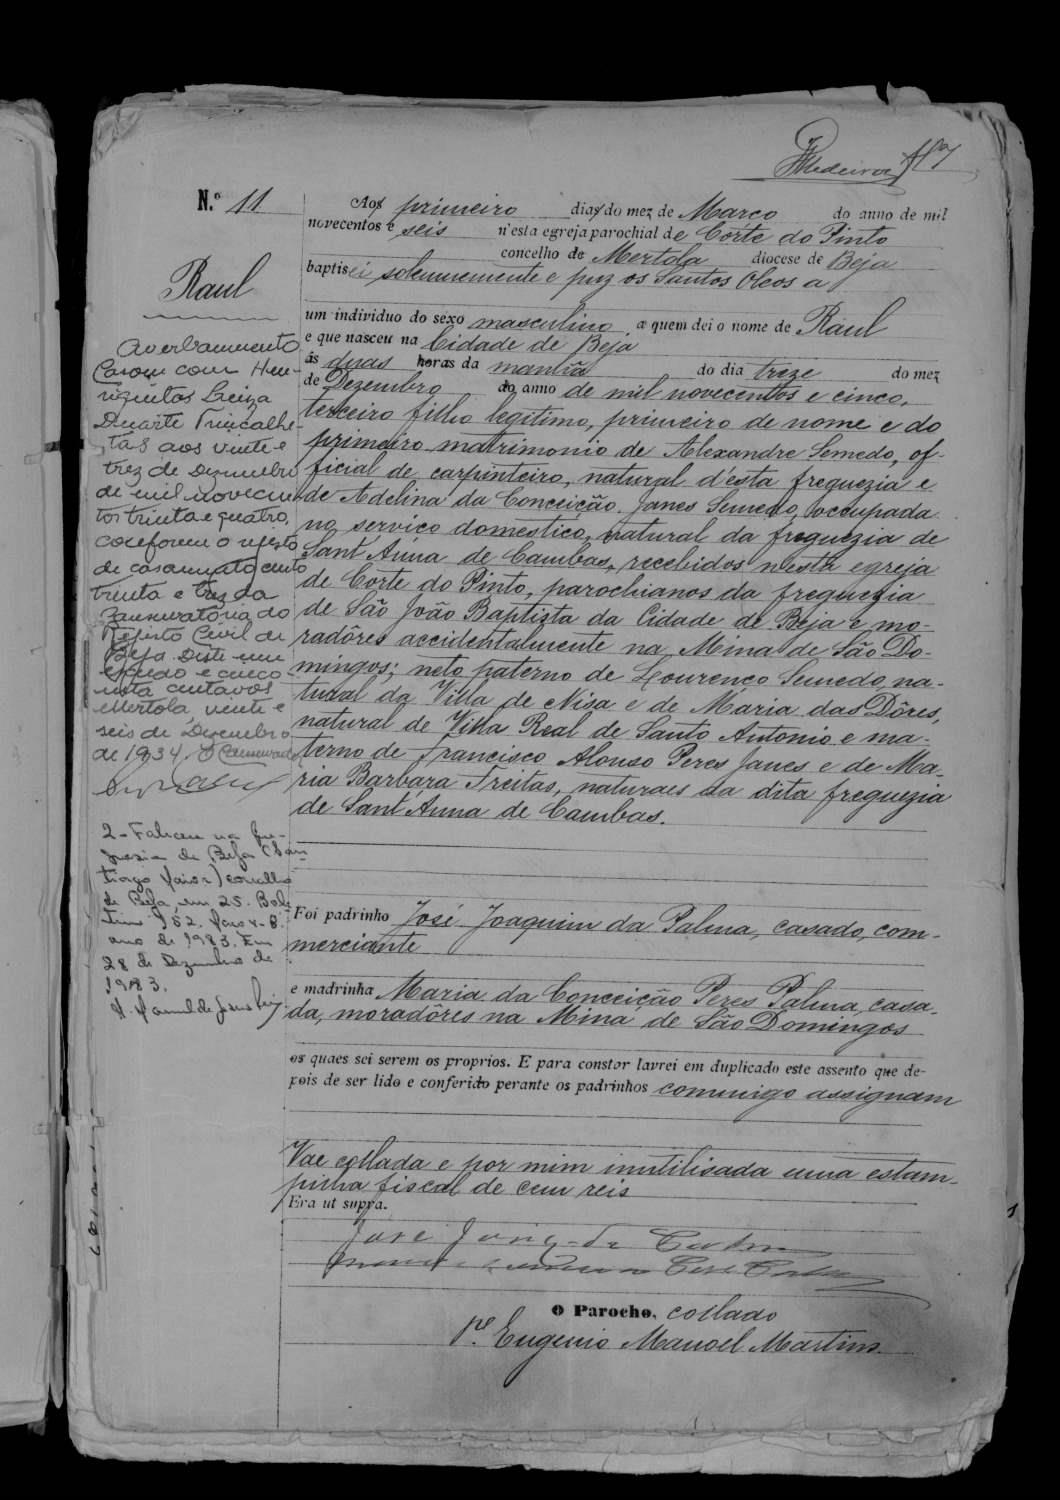 Medeiros
N.º 11
Raul
Aos primeiro dias do mez de Março do anno de mil
novecentos e seis n'esta egreja parochial de Corte do Pinto
concelho de Mertola diocese de Beja
baptisei solemnemente e puz os Santos Oleos a
um individuo do sexo masculino a quem dei o nome de Raul
e que nasceu na Cidade de Beja
ás duas horas da manhã do dia treze do mez
de Dezembro do anno de mil novecentos e cinco,
terceiro filho legitimo, primeiro de nome e do
primeiro matrimonio de Alexandre Semedo, of-
ficial de carpinteiro, natural d'esta freguezia e
de Adelina da Conceição Janes Semedo, occupada
no serviço domestico, natural da freguezia de
Sant'Anna de Cambas, recebidos n'esta egreja
de Corte do Pinto, parochianos da freguezia
de São João Baptista da Cidade de Beja e mo-
radôres accidentalmente na Mina de São Do-
mingos; neto paterno de Lourenço Semedo, na-
tural da Villa de Nisa e de Maria das Dôres,
natural de Villa Real de Santo Antonio e ma-
terno de Francisco Alonso Peres Janes e de Ma-
ria Barbara Freitas, naturaes da dita freguezia
de Sant'Anna de Cambas.
Foi padrinho José Joaquim da Palma, casado, com-
merciante
e madrinha Maria da Conceição Peres Palma, casa-
da, moradôres na Mina de São Domingos
os quaes sei serem os proprios. E para constar lavrei em duplicado este assento que de-
pois de ser lido e conferido perante os padrinhos commigo assignam
Vae collada e por mim inutilisada uma estam-
pilha fiscal de cem reis
Era ut supra.
O Parocho, collado
P.e Eugenio Manoel Martins
Averbamento
Casou com Hen-
Duarte Trincalhe-
tas aos vinte e
trez de Dezembro
de mil novecen-
tos trinta e quatro,
conforme o registo
de casamento cento
trinta e trez da
Conservatória do
Registo Civil de
Beja. Deste um
escudo e cinco-
enta centavos
Mertola, vinte e
seis de Dezembro
de 1934. O Conservador
2 - Faleceu na fre-
guesia de Beja (San-
tiago Maior) concelho
de Beja, em 25. Bole-
tim 152. Maço
ano de 1983. Em
28 de Dezembro de
1983.